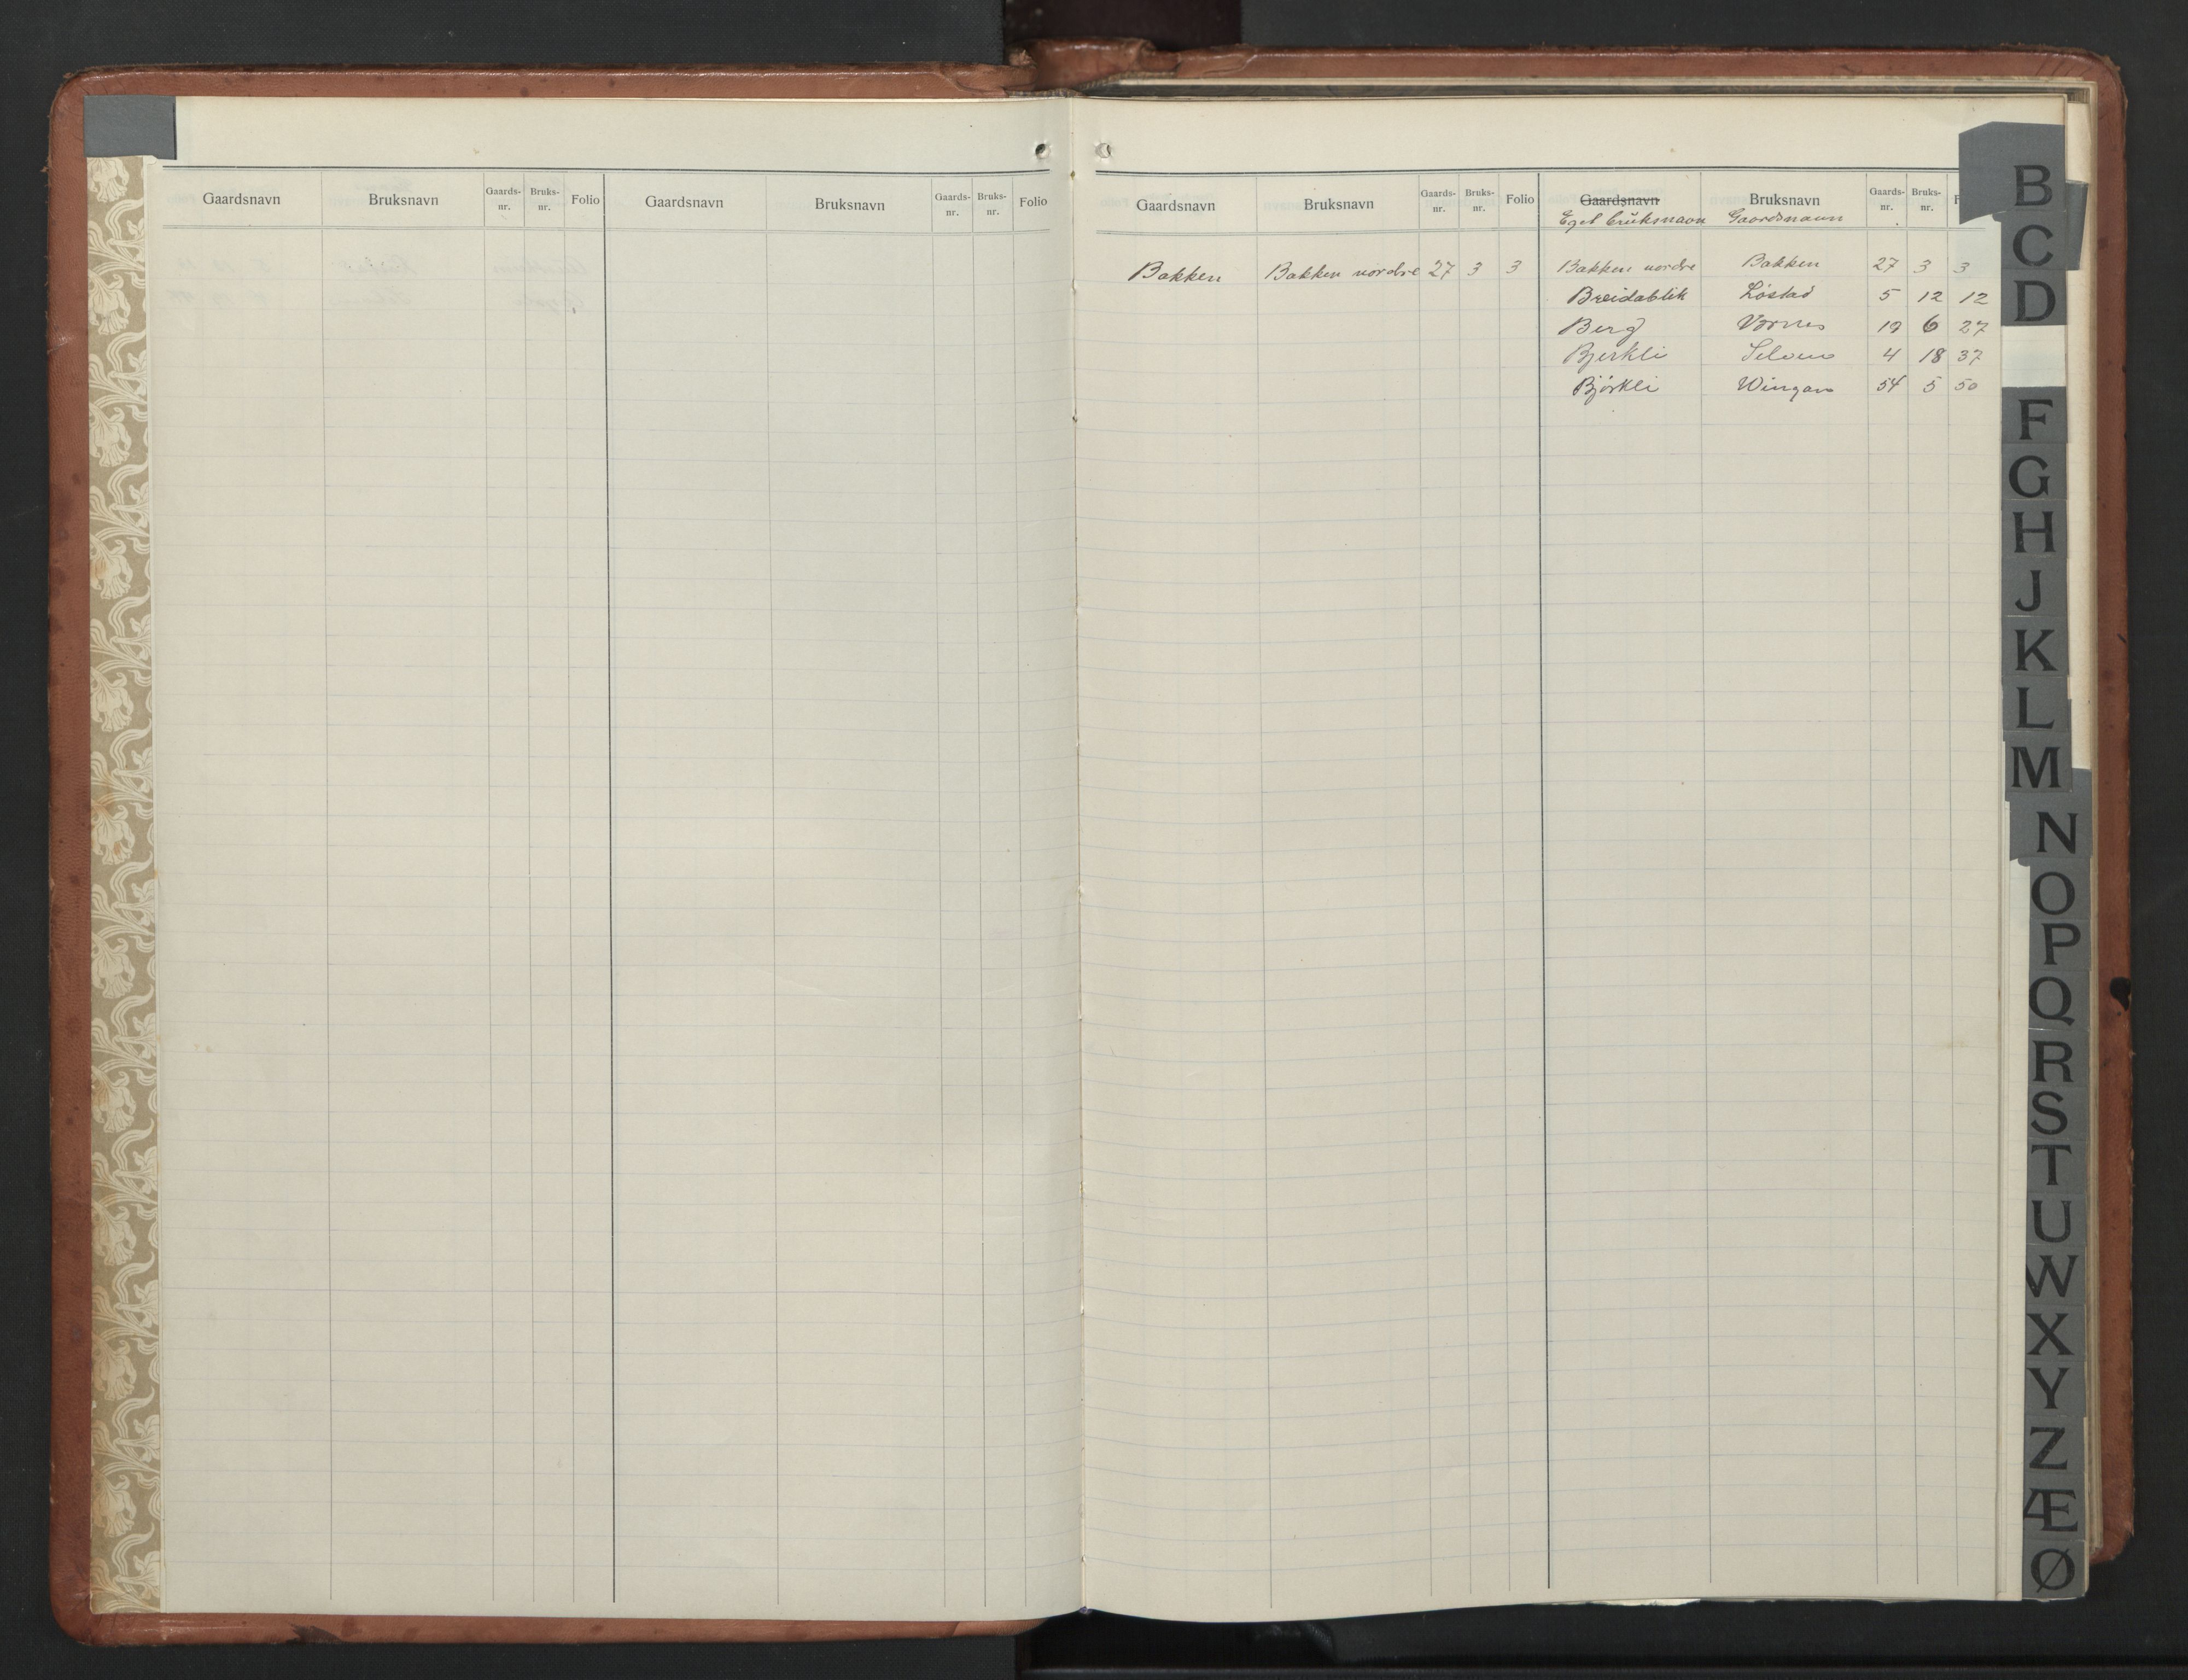 Gaardsnavn Bruksnavn Gaards-nr. Bruks-nr. Folio Gaardsnavn Bruksnavn Gaards-nr. Bruks-nr. Folio
Gaardsnavn Bruksnavn Gaards-nr. Bruks-nr. Folio Gaardsnavn Bruksnavn Gaards-nr. Bruks-nr. F
Eget bruksnavn Gaardsnavn
Bakken Bakken nordre 27 3 3 Bakken nordre Bakken 27 3 3
Breidablik Löstad 5 12 12
Berg Værnes 19 6 27
Bjerkli Selven 4 18 37
Björkli Wingan 54 5 50
B
C
D
F
G
H
J
K
L
M
N
O
P
Q
R
S
T
U
W
X
Y
Z
Æ
Ø